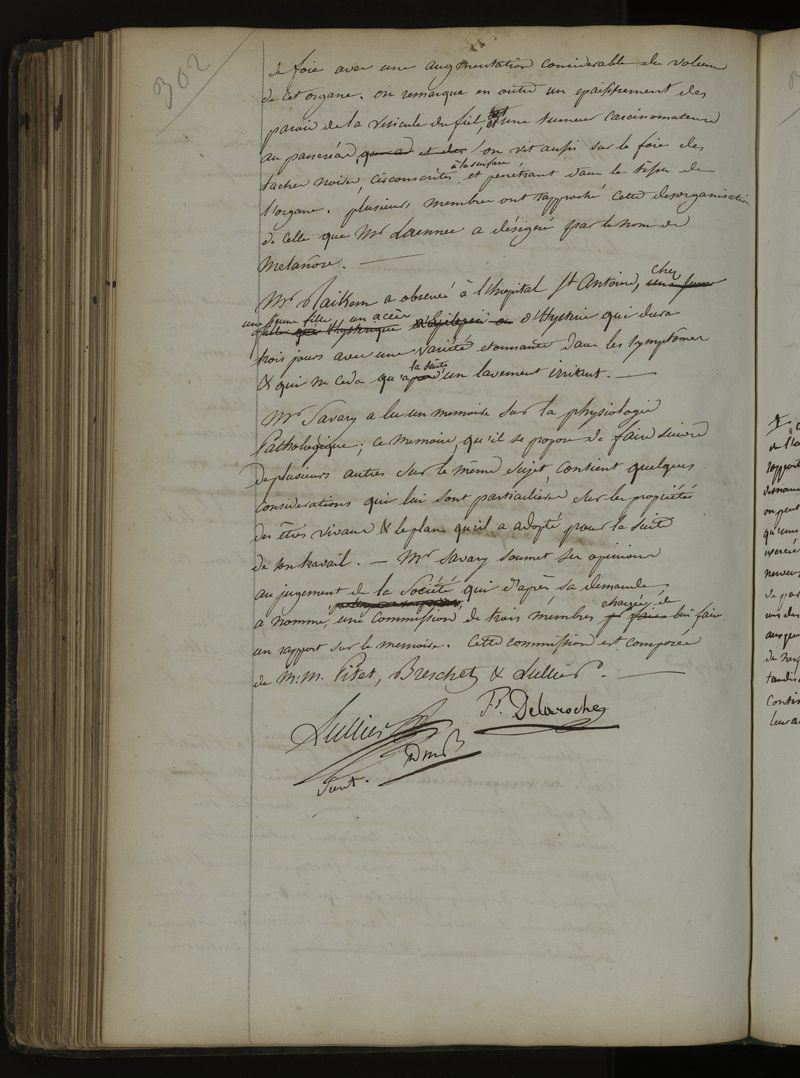 302
de foie avec une augmentation considerable du volume
de cet organe. on remarque en outre un epaississement des
parois de la vesicule du fiel, et une tumeur carcinomateuse
au pancréas, on vit aussi sur le foie des
taches noires, circonscrites à la surface et penetrant dans le tissu de
l'organe. plusieurs membres ont rapproché cette desorganisation
de celle que Mr Laennec a désigné par le nom de
melanose. —
Mr Raikem a observé à l'hopital St Antoine, chez
une jeune fille, un accès d'hysterie qui dura
trois jours avec une variété etonnante dans les symptômes
& qui ne ceda qu'à la suite d'un lavement irritant. —
Mr Savary a lu un memoire sur la physiologie
Pathologique; ce memoire, qu'il se propose de faire suivre
de plusieurs autres sur le même sujet, contient quelques
considerations qui lui sont particulières sur les propriétés
des êtres vivans & le plan qu'il a adopté pour la suite
de son travail. — Mr Savary soumet ses opinions
au jugement de la Société qui d'après sa demande,
a nommé, une Commission de trois membres chargée de lui faire
un rapport sur le memoire. Cette commission est composée
de M.M. Pitet, Breschet & Lullier. —
Lullier
F. Delaroche
DmP